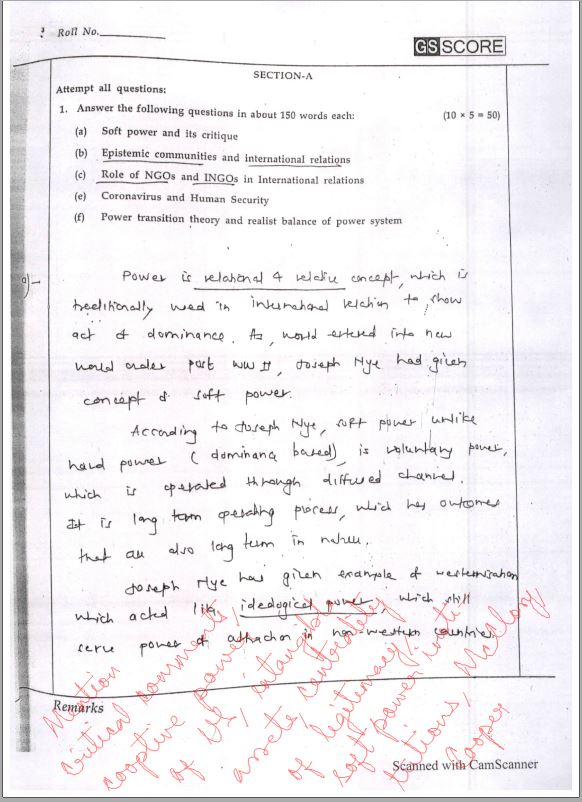 Roll No.
GS SCORE
SECTION-A
Attempt all questions:
1. Answer the following questions in about 150 words each: (10 × 5 = 50)
(a) Soft power and its critique
(b) Epistemic communities and international relations
(c) Role of NGOs and INGOs in International relations
(e) Coronavirus and Human Security
(f) Power transition theory and realist balance of power system
a)-
Power is relational & relative concept, which is
traditionally used in international relation to show
act of dominance. As, world entered into new
world order post WW II, Joseph Nye had given
concept of soft power.
According to Joseph Nye, soft power unlike
hard power (dominance based), is voluntary power,
which is operated through diffused channel.
It is long term operating process, which has outcomes
that are also long term in nature.
Joseph Nye has given example of westernisation
which acted like ideological power, which still
serve power of attraction in non-western countries
Mention
critical comments,
cooptive power
of US, intangible
assets,
of legitimacy,
soft power insti-
tutions, McClory,
Cooper
Remarks
Scanned with CamScanner